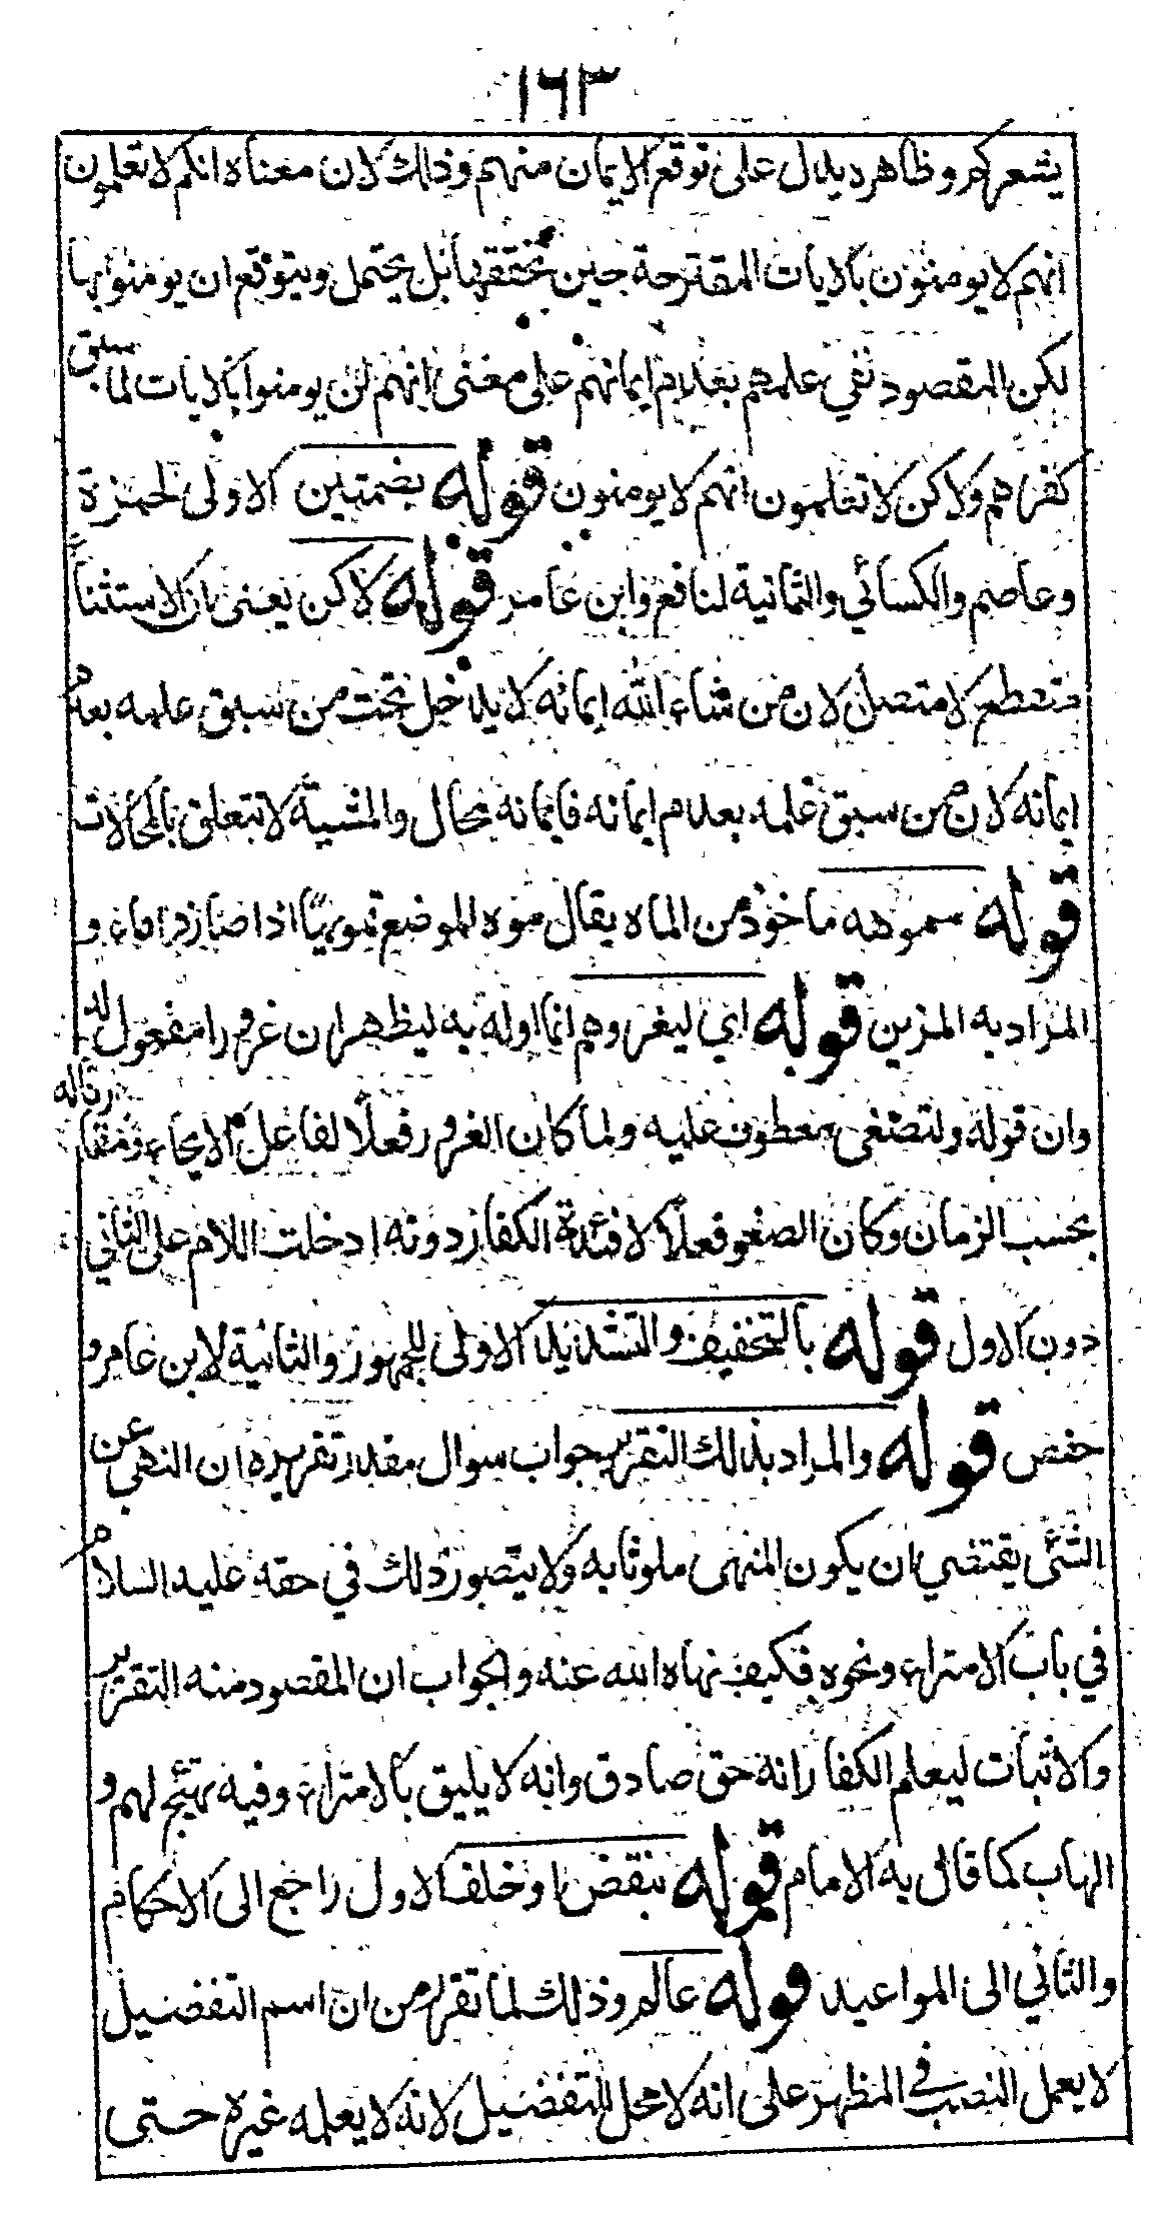 ١٦٣
يشعركم وظاهره يدل على توقع الايمان منهم وذلك لان معناه انكم لا تعلمون
انهم لا يومنون بالايات المقترحة حين تحققها بل يحتمل ويتوقع ان يومنوا بها
لكن المقصود نفي علمهم بعدم ايمانهم على معنى انهم لن يومنوا بالايات لما سبق
كفرهم ولاكن لا تعلمون انهم لا يومنون قوله بضمتين الاولى لحمزة
وعاصم والكسائي والثانية لنافع وابن عامر قوله لاكن يعنى ان الاستثنا
منقطع لا متصل لان من شاء الله ايمانه لا يدخل تحت من سبق علمه بعدم
ايمانه لان من سبق علمه بعدم ايمانه فايمانه محال والمشية لا تتعلق بالمحالات
قوله مموهه ماخوذ من الماه يقال موه الموضع تمويها اذا صار ذا ماء و
المراد به المزين قوله اي ليغروهم انما اوله به ليظهر ان غرورا مفعول له
وان قوله ولتصغى معطوف عليه ولما كان الغرور فعلا لفاعل الايحاء ومقارنا له
بحسب الزمان وكان الصغو فعلا لافئدة الكفار دونه ادخلت اللام على الثاني
دون الاول قوله بالتخفيف والتشديد الاولى للجمهور والثانية لابن عامر و
حفص قوله والمراد بذالك التقرير جواب سوال مقدر تقريره ان النهى عن
الشئ يقتضي ان يكون المنهى ملوثا به ولا يتصور ذلك في حقه عليه السلام
في باب الامتراء ونحوه فكيف نهاه الله عنه والجواب ان المقصود منه التقرير
والاثبات ليعلم الكفار انه حق صادق وانه لا يليق بالامتراء وفيه تهيّج لهم و
الهاب كما قال به الامام قوله بنقض او خلف الاول راجع الى الاحكام
والثاني الى المواعيد قوله عالم وذلك لما تقرر من ان اسم التفضيل
لا يعمل النصب في المظهر على انه لا محل للتفضيل لانه لا يعلمه غيره حتى